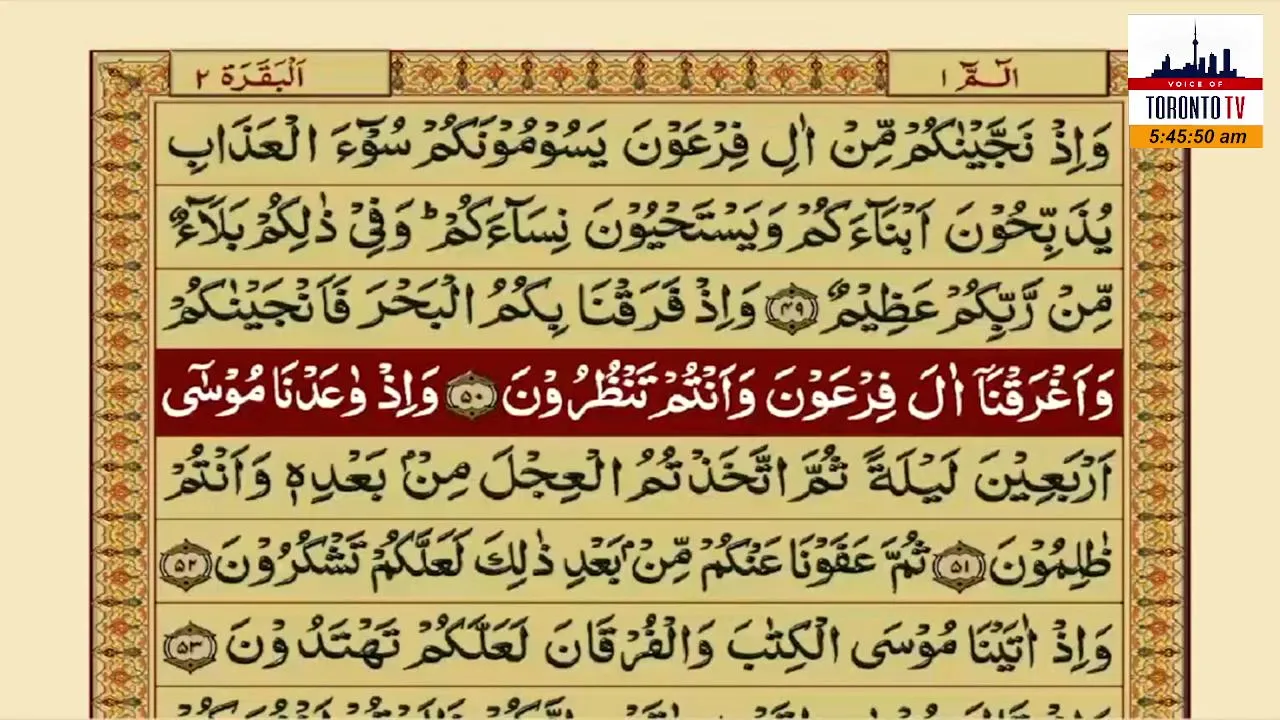 الٓمّٓ ١
اَلْبَقَرَة ٢
VOICE OF
TORONTO TV
5:45:50 am
وَاِذْ نَجَّيْنٰكُمْ مِّنْ اٰلِ فِرْعَوْنَ يَسُوْمُوْنَكُمْ سُوْٓءَ الْعَذَابِ
يُذَبِّحُوْنَ اَبْنَآءَكُمْ وَيَسْتَحْيُوْنَ نِسَآءَكُمْ ؕ وَفِيْ ذٰلِكُمْ بَلَآءٌ
مِّنْ رَّبِّكُمْ عَظِيْمٌ ﴿۴۹﴾ وَاِذْ فَرَقْنَا بِكُمُ الْبَحْرَ فَاَنْجَيْنٰكُمْ
وَاَغْرَقْنَآ اٰلَ فِرْعَوْنَ وَاَنْتُمْ تَنْظُرُوْنَ ﴿۵۰﴾ وَاِذْ وٰعَدْنَا مُوْسٰٓى
اَرْبَعِيْنَ لَيْلَةً ثُمَّ اتَّخَذْتُمُ الْعِجْلَ مِنْۢ بَعْدِهٖ وَاَنْتُمْ
ظٰلِمُوْنَ ﴿۵۱﴾ ثُمَّ عَفَوْنَا عَنْكُمْ مِّنْۢ بَعْدِ ذٰلِكَ لَعَلَّكُمْ تَشْكُرُوْنَ ﴿۵۲﴾
وَاِذْ اٰتَيْنَا مُوْسَى الْكِتٰبَ وَالْفُرْقَانَ لَعَلَّكُمْ تَهْتَدُوْنَ ﴿۵۳﴾